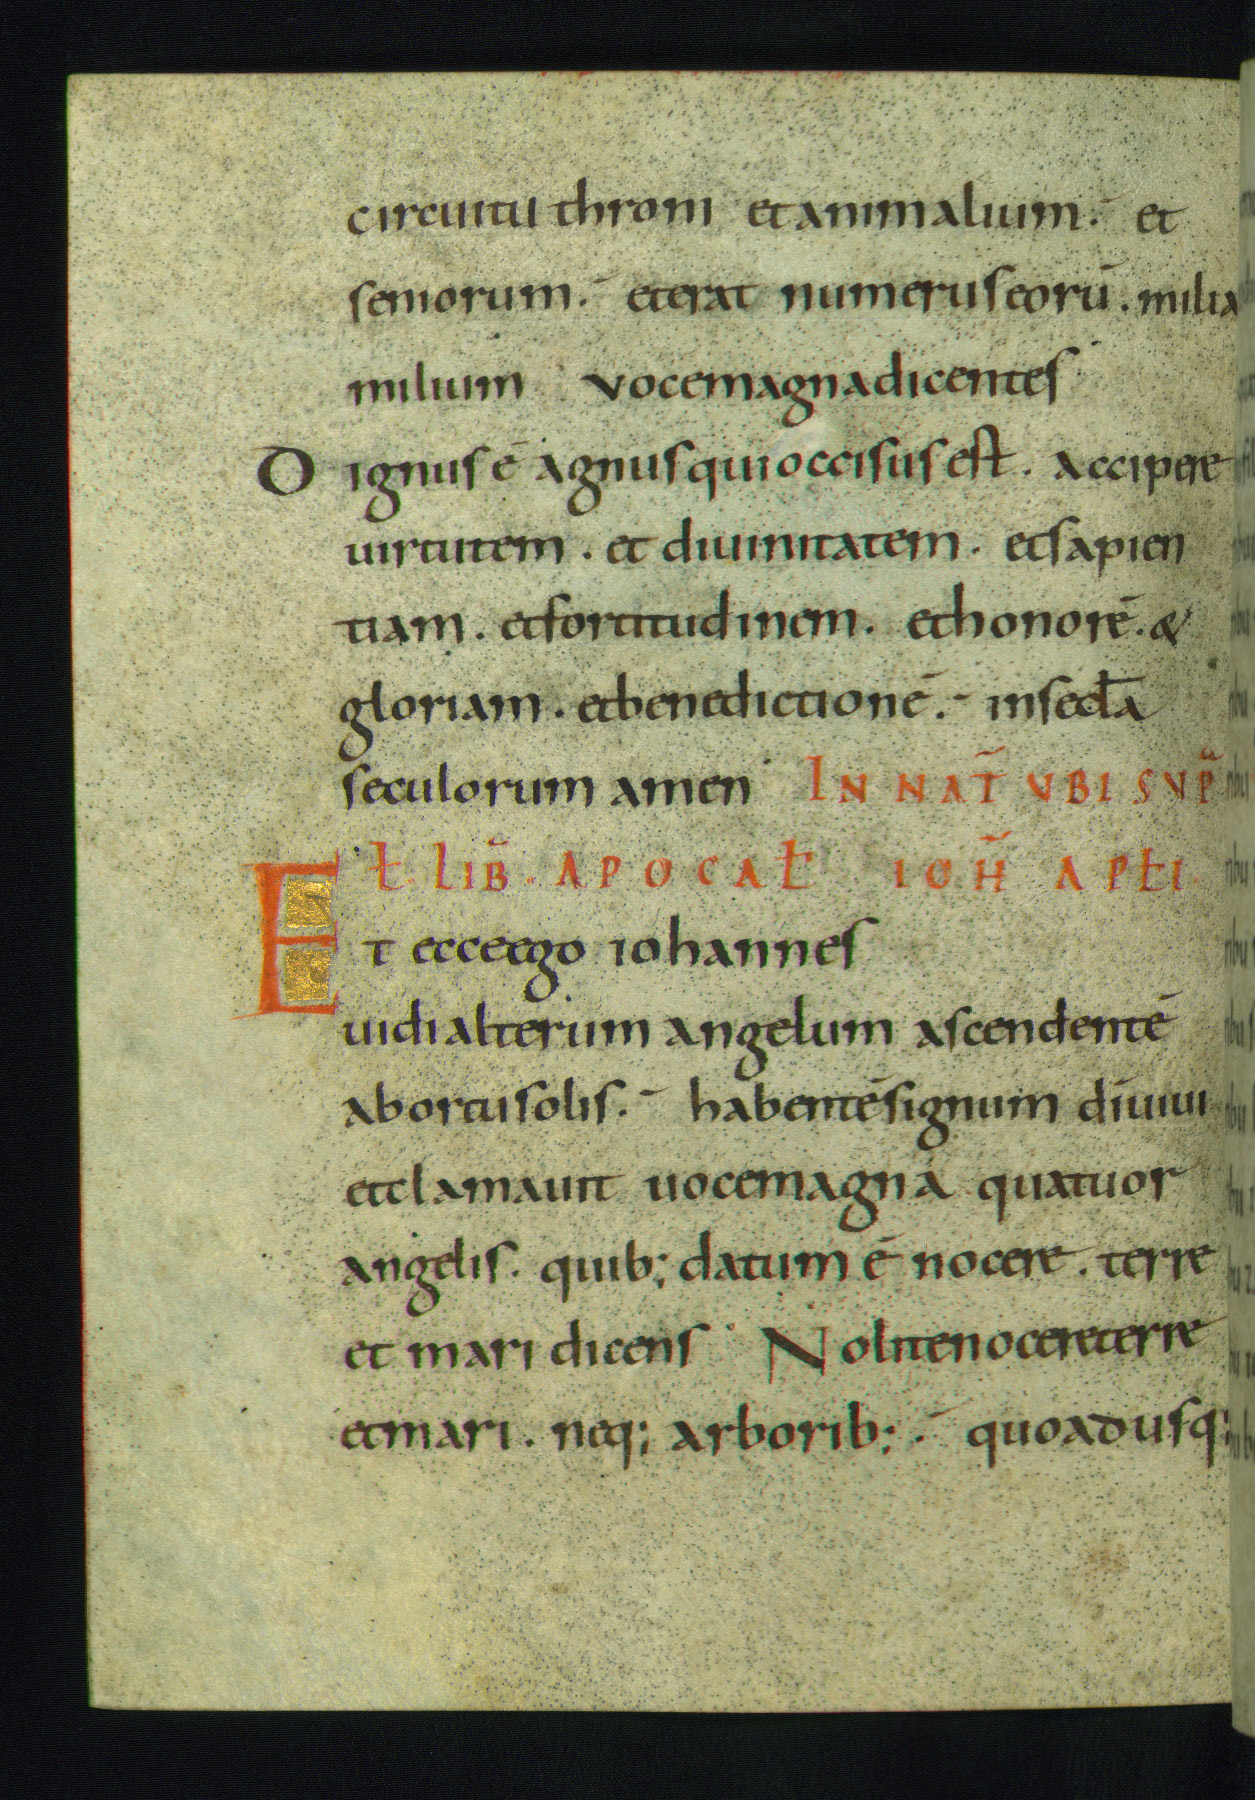 circuitu throni et animalium. et
seniorum. et erat numerus eorū. milia
milium voce magna dicentes
Dignus ē agnus qui occisus est. accipere
uirtutem. et diuinitatem. et sapien
tiam. et fortitudinem. et honorē. &
gloriam. et benedictionē. in secl̄a
seculorum amen IN NAT̄ VBI SVP̄
ƚ. LIB̄. APOCAƚ IOH̄ APƚI.
Et ecce ego iohannes
uidi alterum angelum ascendentē
ab ortu solis. habentē signum di uiui
et clamauit uoce magna quatuor
angelis. quib; datum ē nocere. terre
et mari dicens Nolite nocere terre
et mari. neq; arborib;. quo adusq;